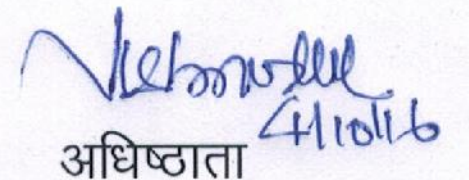 4/10/16
अधिष्ठाता